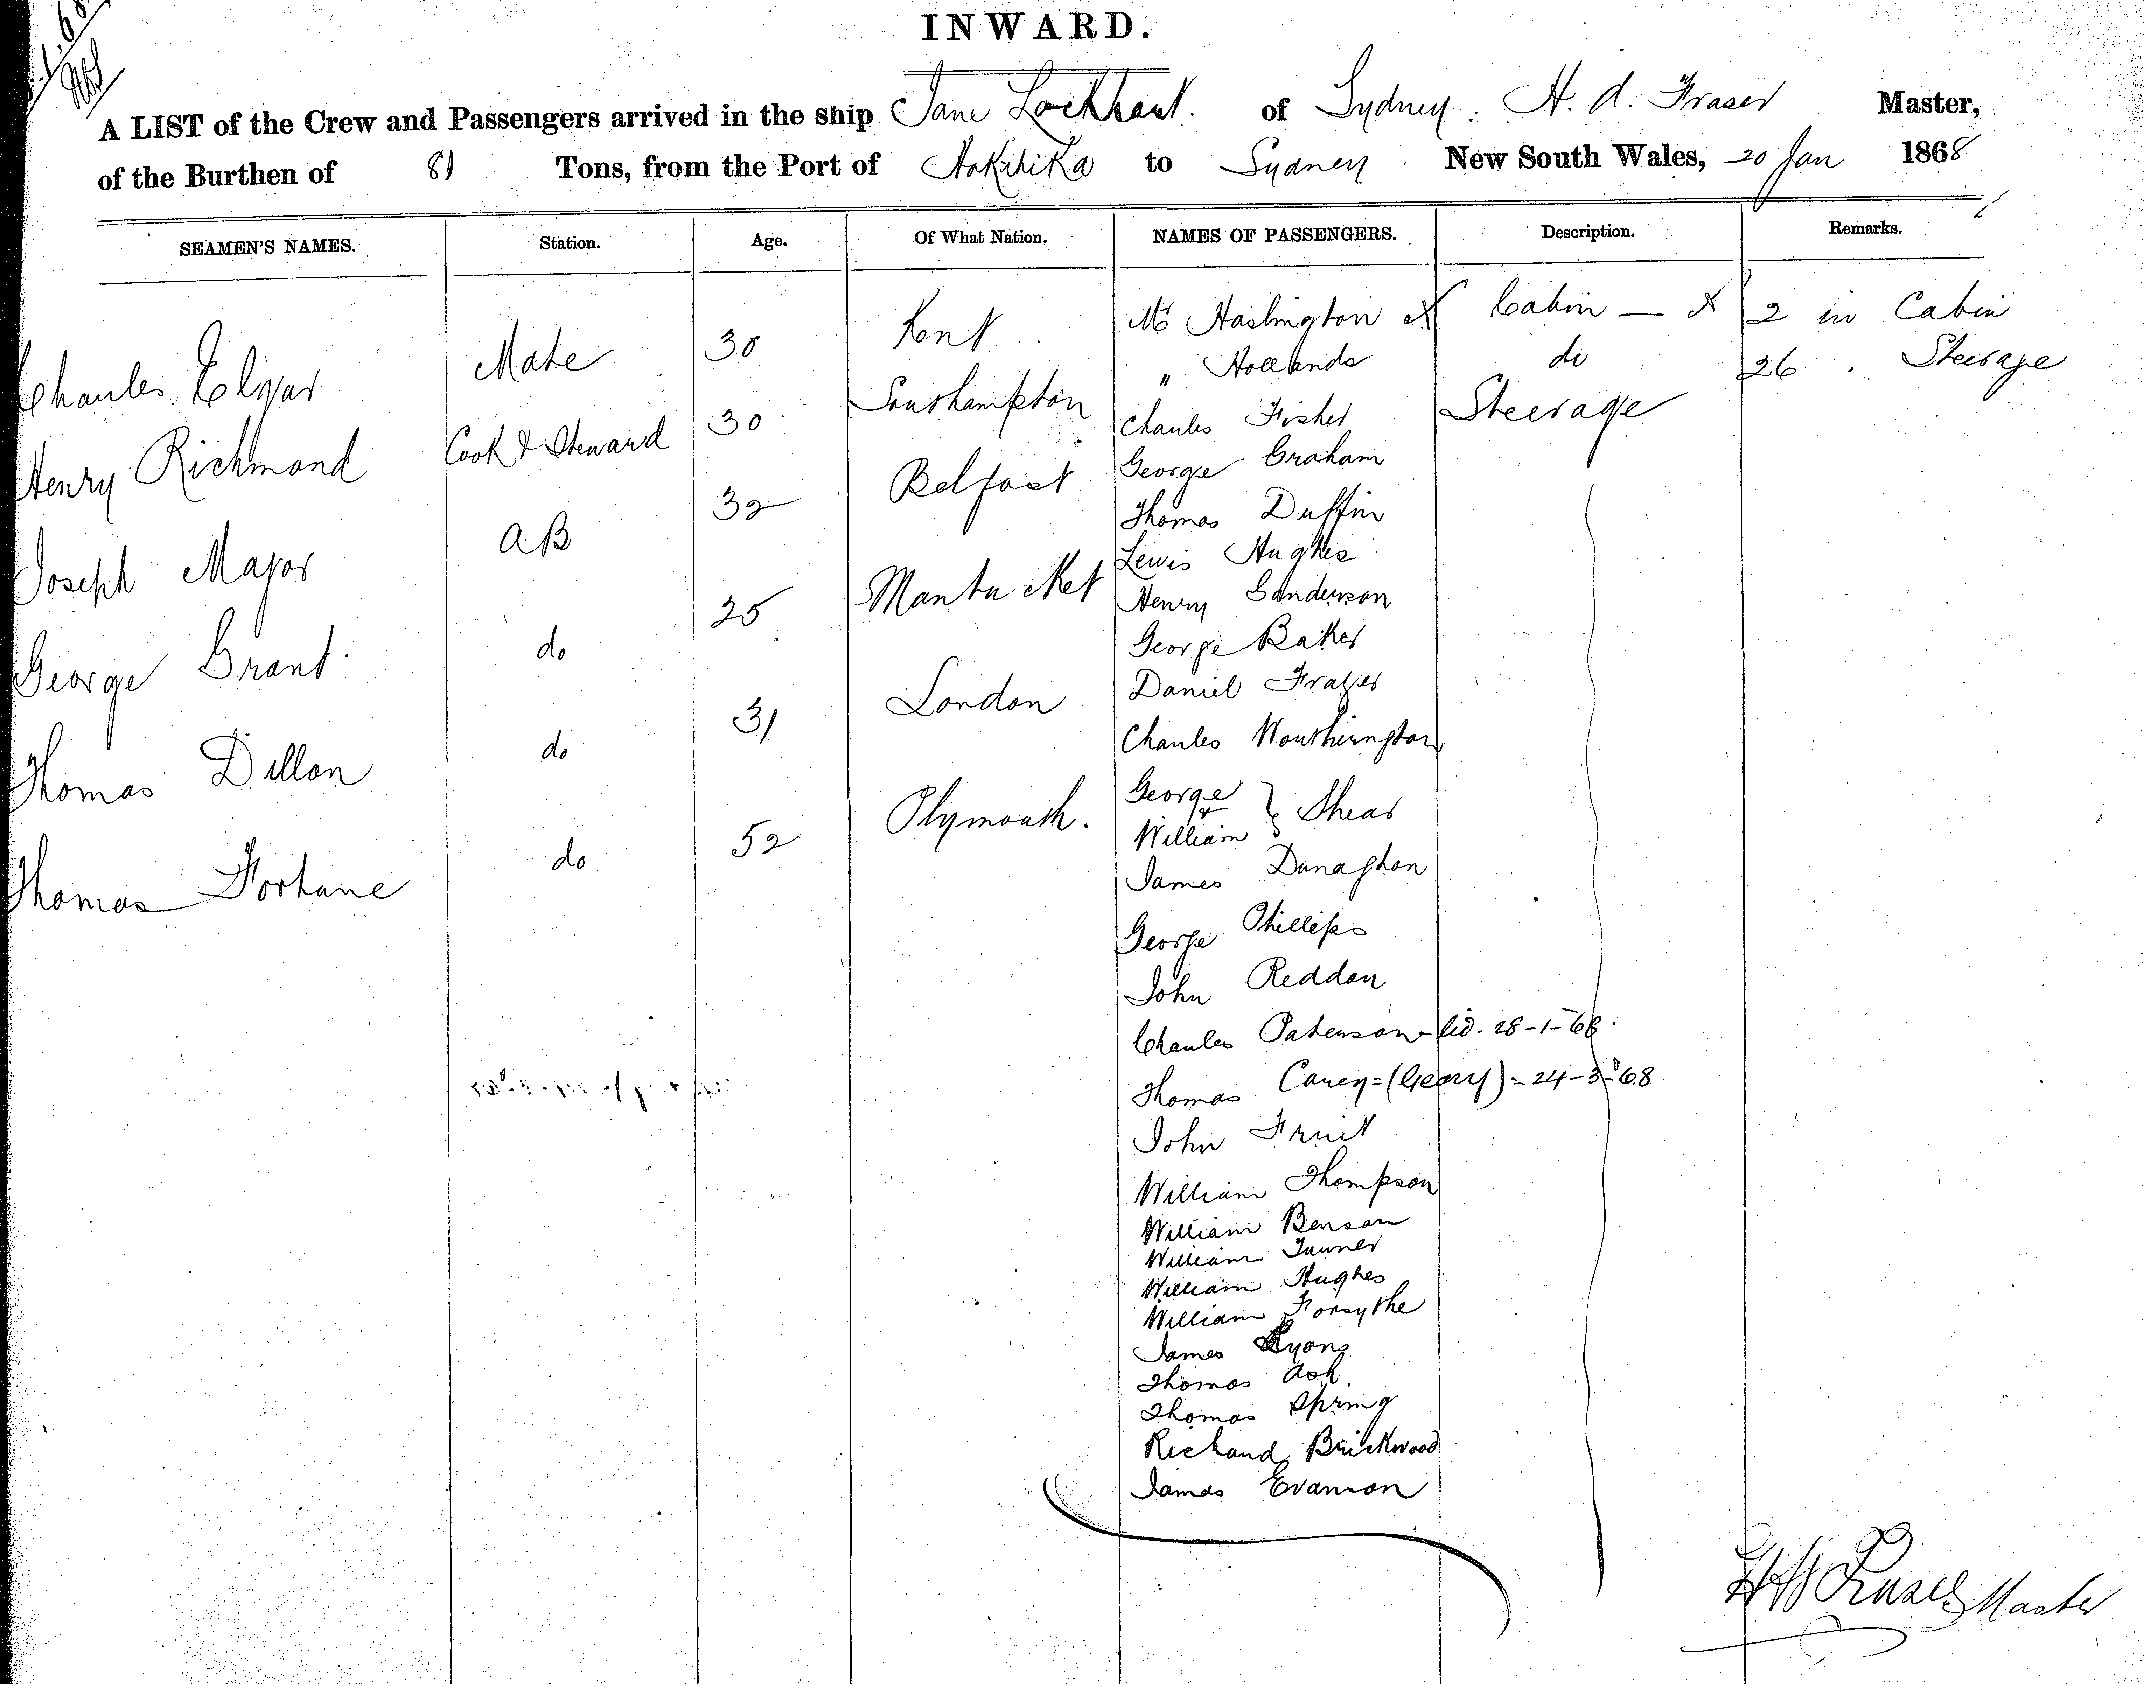 INWARD.
A LIST of the Crew and Passengers arrived in the ship Jane Lockhart. of Sydney. H. A. Fraser Master,
of the Burthen of 81 Tons, from the Port of Hokitika to Sydney New South Wales, 20 Jan 1868
SEAMEN'S NAMES. Station. Age. Of What Nation. NAMES OF PASSENGERS. Description. Remarks.
Charles Elgar Mate 30 Kent
Henry Richmond Cook & Steward 30 Southampton
Joseph Major AB 32 Belfast
George Grant. do 25 Nantucket
Thomas Dillon do 31 London
Thomas Fortune do 52 Plymouth.
Mr Haslington x Cabin — x 2 in Cabin
" Hollands do 26 . Steerage
Charles Fisher Steerage
George Graham
Thomas Duffin
Lewis Hughes
Henry Sanderson
George Baker
Daniel Frazer
Charles Worthington
George } Shear
&
William
James Danaghon
George Phillips
John Reddan
Charles Paterson - lid. 28-1-68.
Thomas Carey = (Geary) = 24-3-68
John Fruit
William Thompson
William Benson
William Turner
William Hughes
William Forsythe
James Lyons
Thomas Ash.
Thomas Spring
Richard Brickwood
James Evanson
Fraser Master